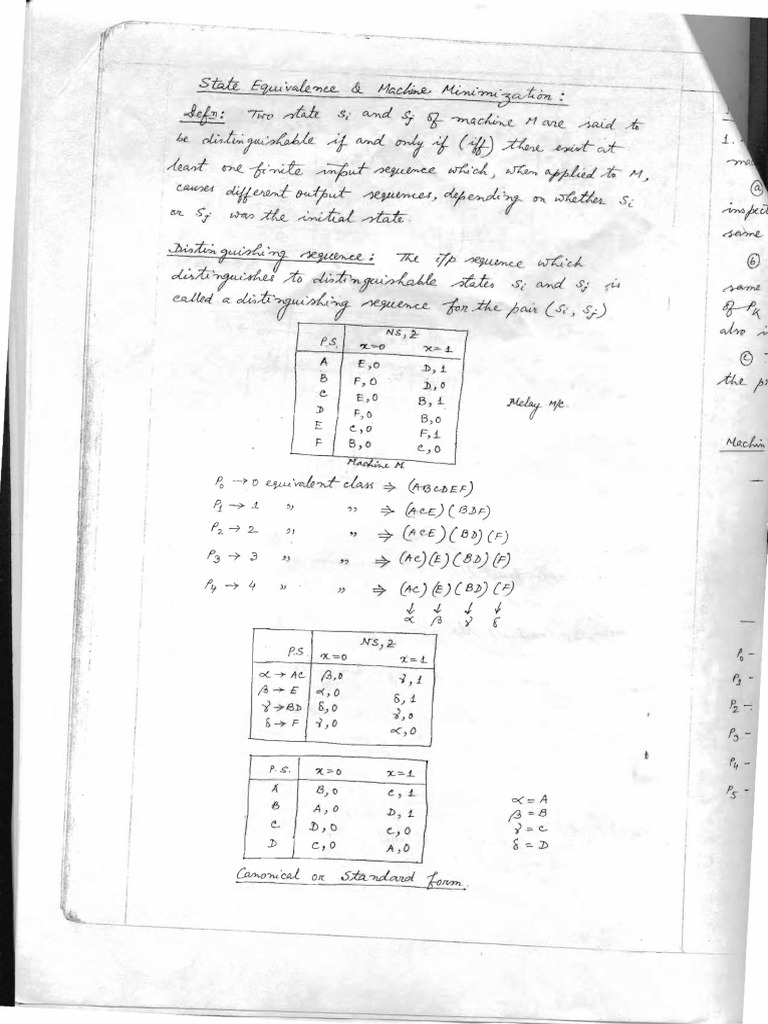 State Equivalence & Machine Minimization :
Defn: Two state Si and Sj of machine M are said to
be distinguishable if and only if (iff) there exist at
least one finite input sequence which, when applied to M,
causes different output sequences, depending on whether Si
or Sj was the initial state.
Distinguishing sequence : The i/p sequence which
distinguishes to distinguishable states Si and Sj is
called a distinguishing sequence for the pair (Si, Sj)
NS, Z
P.S. x=0 x=1
A E,0 D,1
B F,0 D,0
C E,0 B,1
D F,0 B,0
E C,0 F,1
F B,0 C,0
Melay M/c
Machine M
P0 → 0 equivalent class ⇒ (ABCDEF)
P1 → 1 " " ⇒ (ACE)(BDF)
P2 → 2 " " ⇒ (ACE)(BD)(F)
P3 → 3 " " ⇒ (AC)(E)(BD)(F)
P4 → 4 " " ⇒ (AC)(E)(BD)(F)
↓ ↓ ↓ ↓
α β γ δ
NS, Z
P.S x=0 x=1
α → AC β,0 γ,1
β → E α,0 δ,1
γ → BD δ,0 γ,0
δ → F γ,0 α,0
P.S. x=0 x=1
A B,0 C,1
B A,0 D,1
C D,0 C,0
D C,0 A,0
α = A
β = B
γ = C
δ = D
Canonical or Standard form.
1.
(a)
inspect
same
(b)
same
of PK
also
(c)
the
Machin
P0 -
P1 -
P2 -
P3 -
P4 -
P5 -